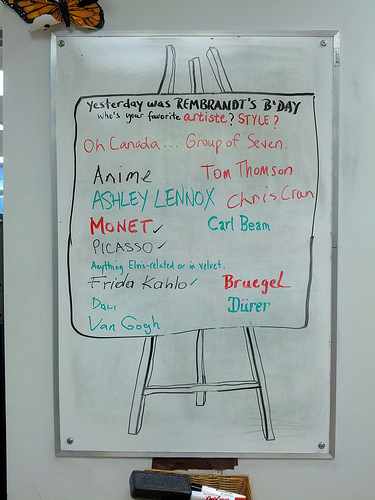 yesterday was REMBRANDT'S B'DAY
who's your favorite artiste? STYLE?
Oh Canada... Group of Seven.
Anime
Tom Thomson
ASHLEY LENNOX
Chris Cran
MONET ✓
Carl Beam
PICASSO ✓
Anything Elvis-related or in velvet.
Frida Kahlo ✓
Bruegel
Dali
Dürer
Van Gogh